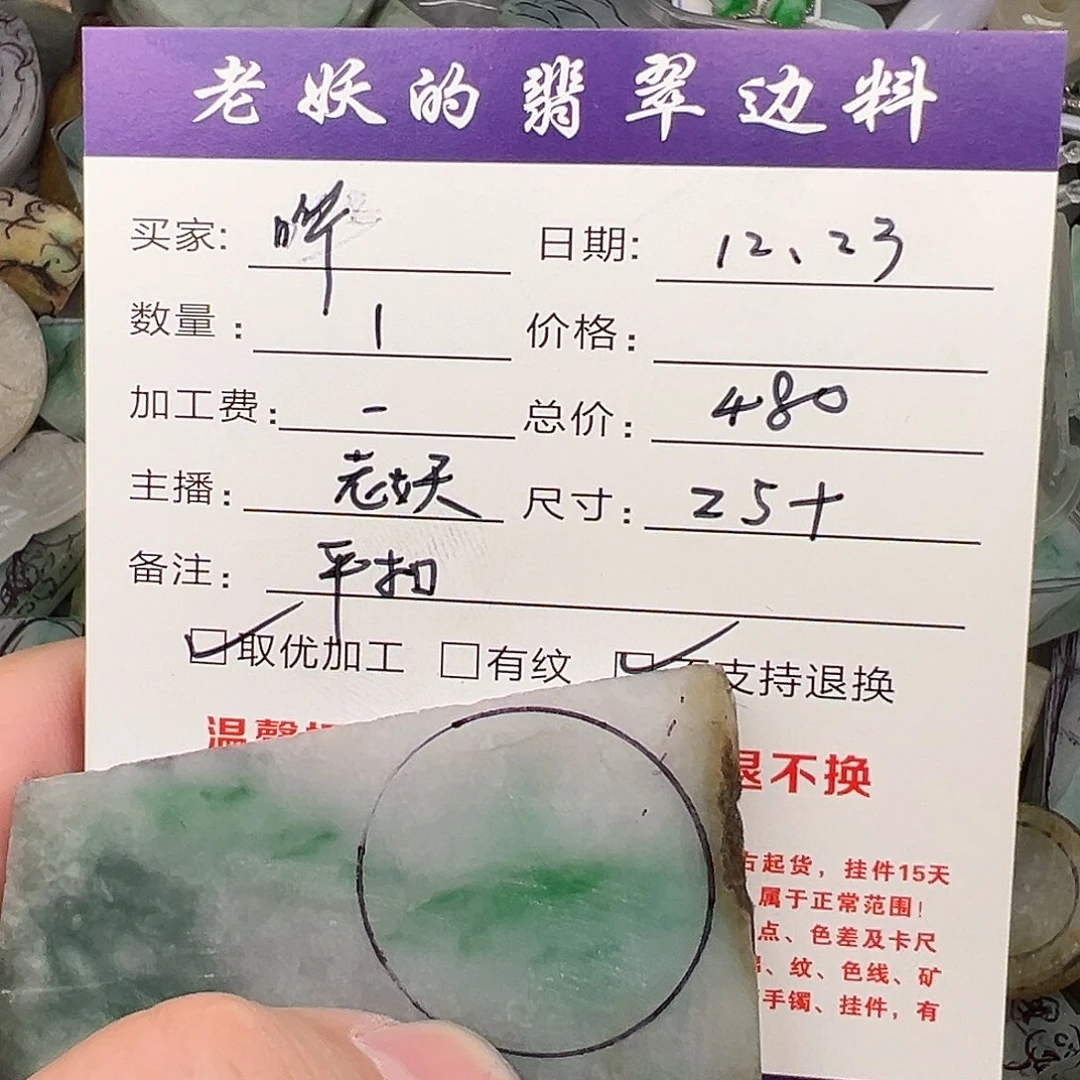 老妖的翡翠边料
买家: 晔 日期: 12、23
数量: 1 价格:
加工费: - 总价: 480
主播: 老妖 尺寸: 25+
备注: 平扣
取优加工 有纹 支持退换
温馨 退不换
起货，挂件15天
属于正常范围!
点、色差及卡尺
、纹、色线、矿
手镯、挂件，有